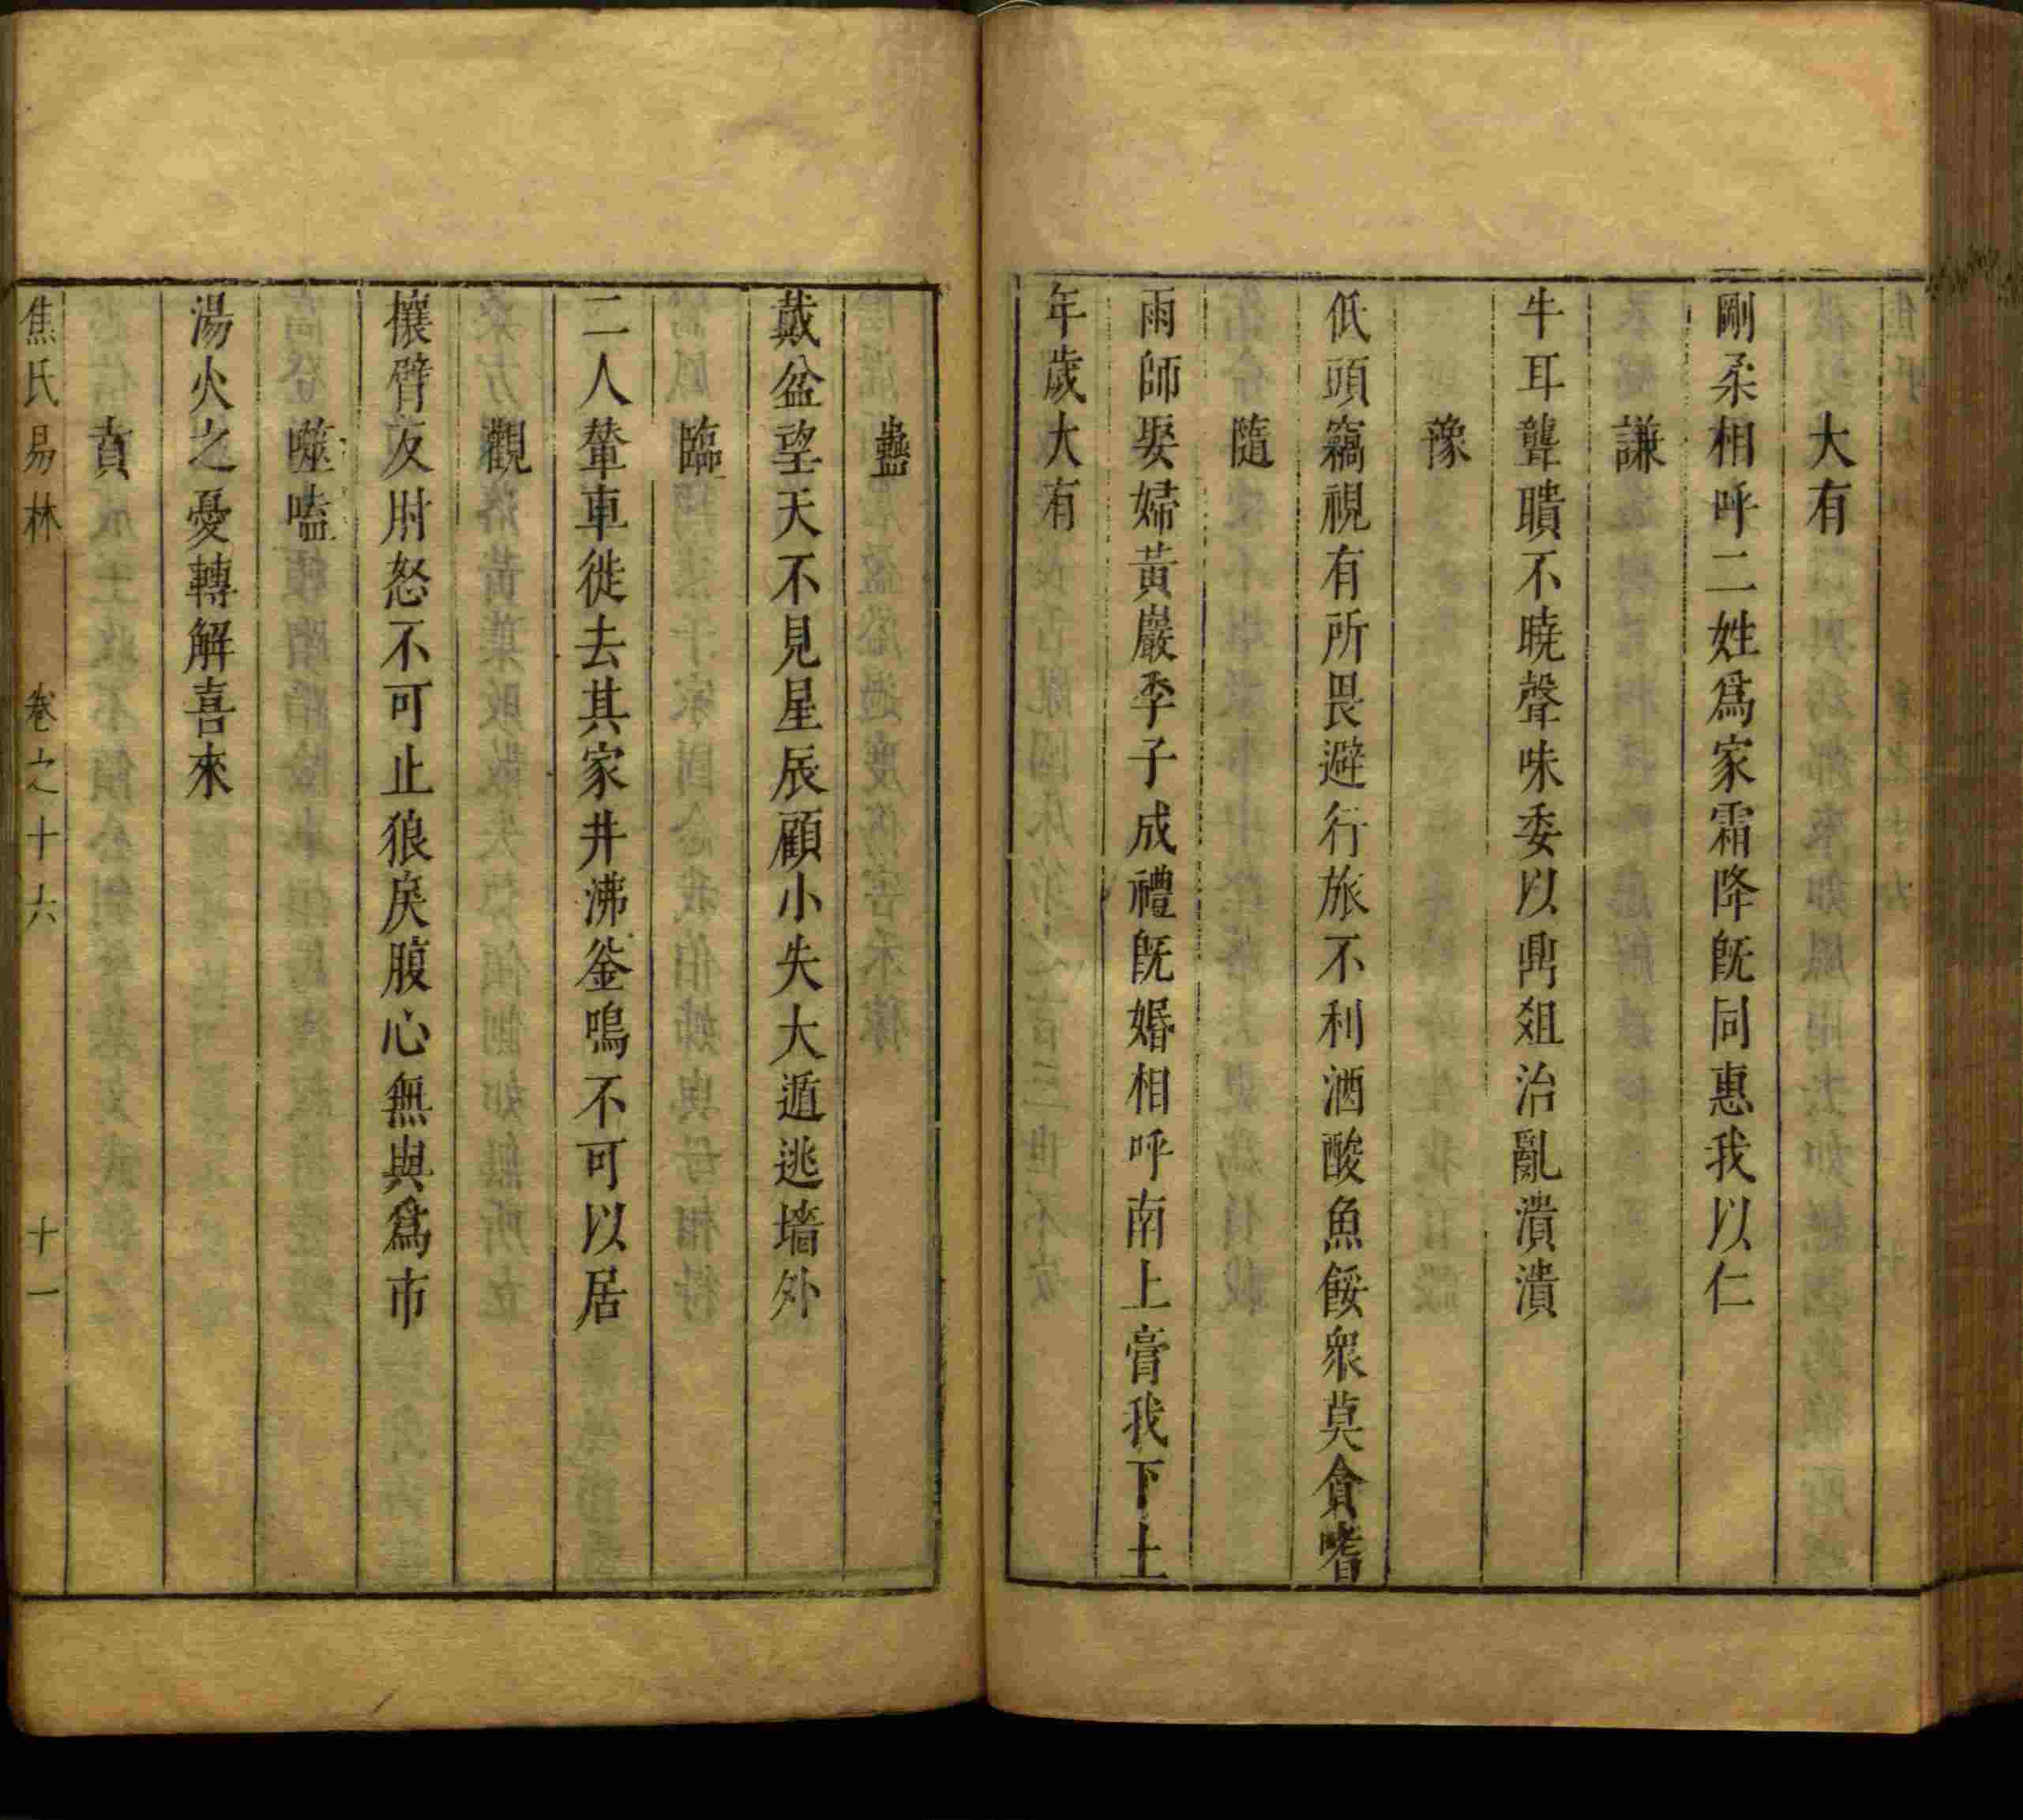 大有
剛柔相呼二姓爲家霜降旣同惠我以仁
謙
牛耳聾聵不曉聲味委以鼎俎治亂潰潰
豫
低頭竊視有所畏避行旅不利酒酸魚餒衆莫貪嗜
隨
雨師娶婦黃巖季子成禮旣婚相呼南上膏我下土
年歲大有
蠱
戴盆望天不見星辰顧小失大遁逃墻外
臨
二人輦車徙去其家井沸釜鳴不可以居
觀
攘臂反肘怒不可止狼戾腹心無與爲市
噬嗑
湯火之憂轉解喜來
賁
焦氏易林 卷之十六 十一